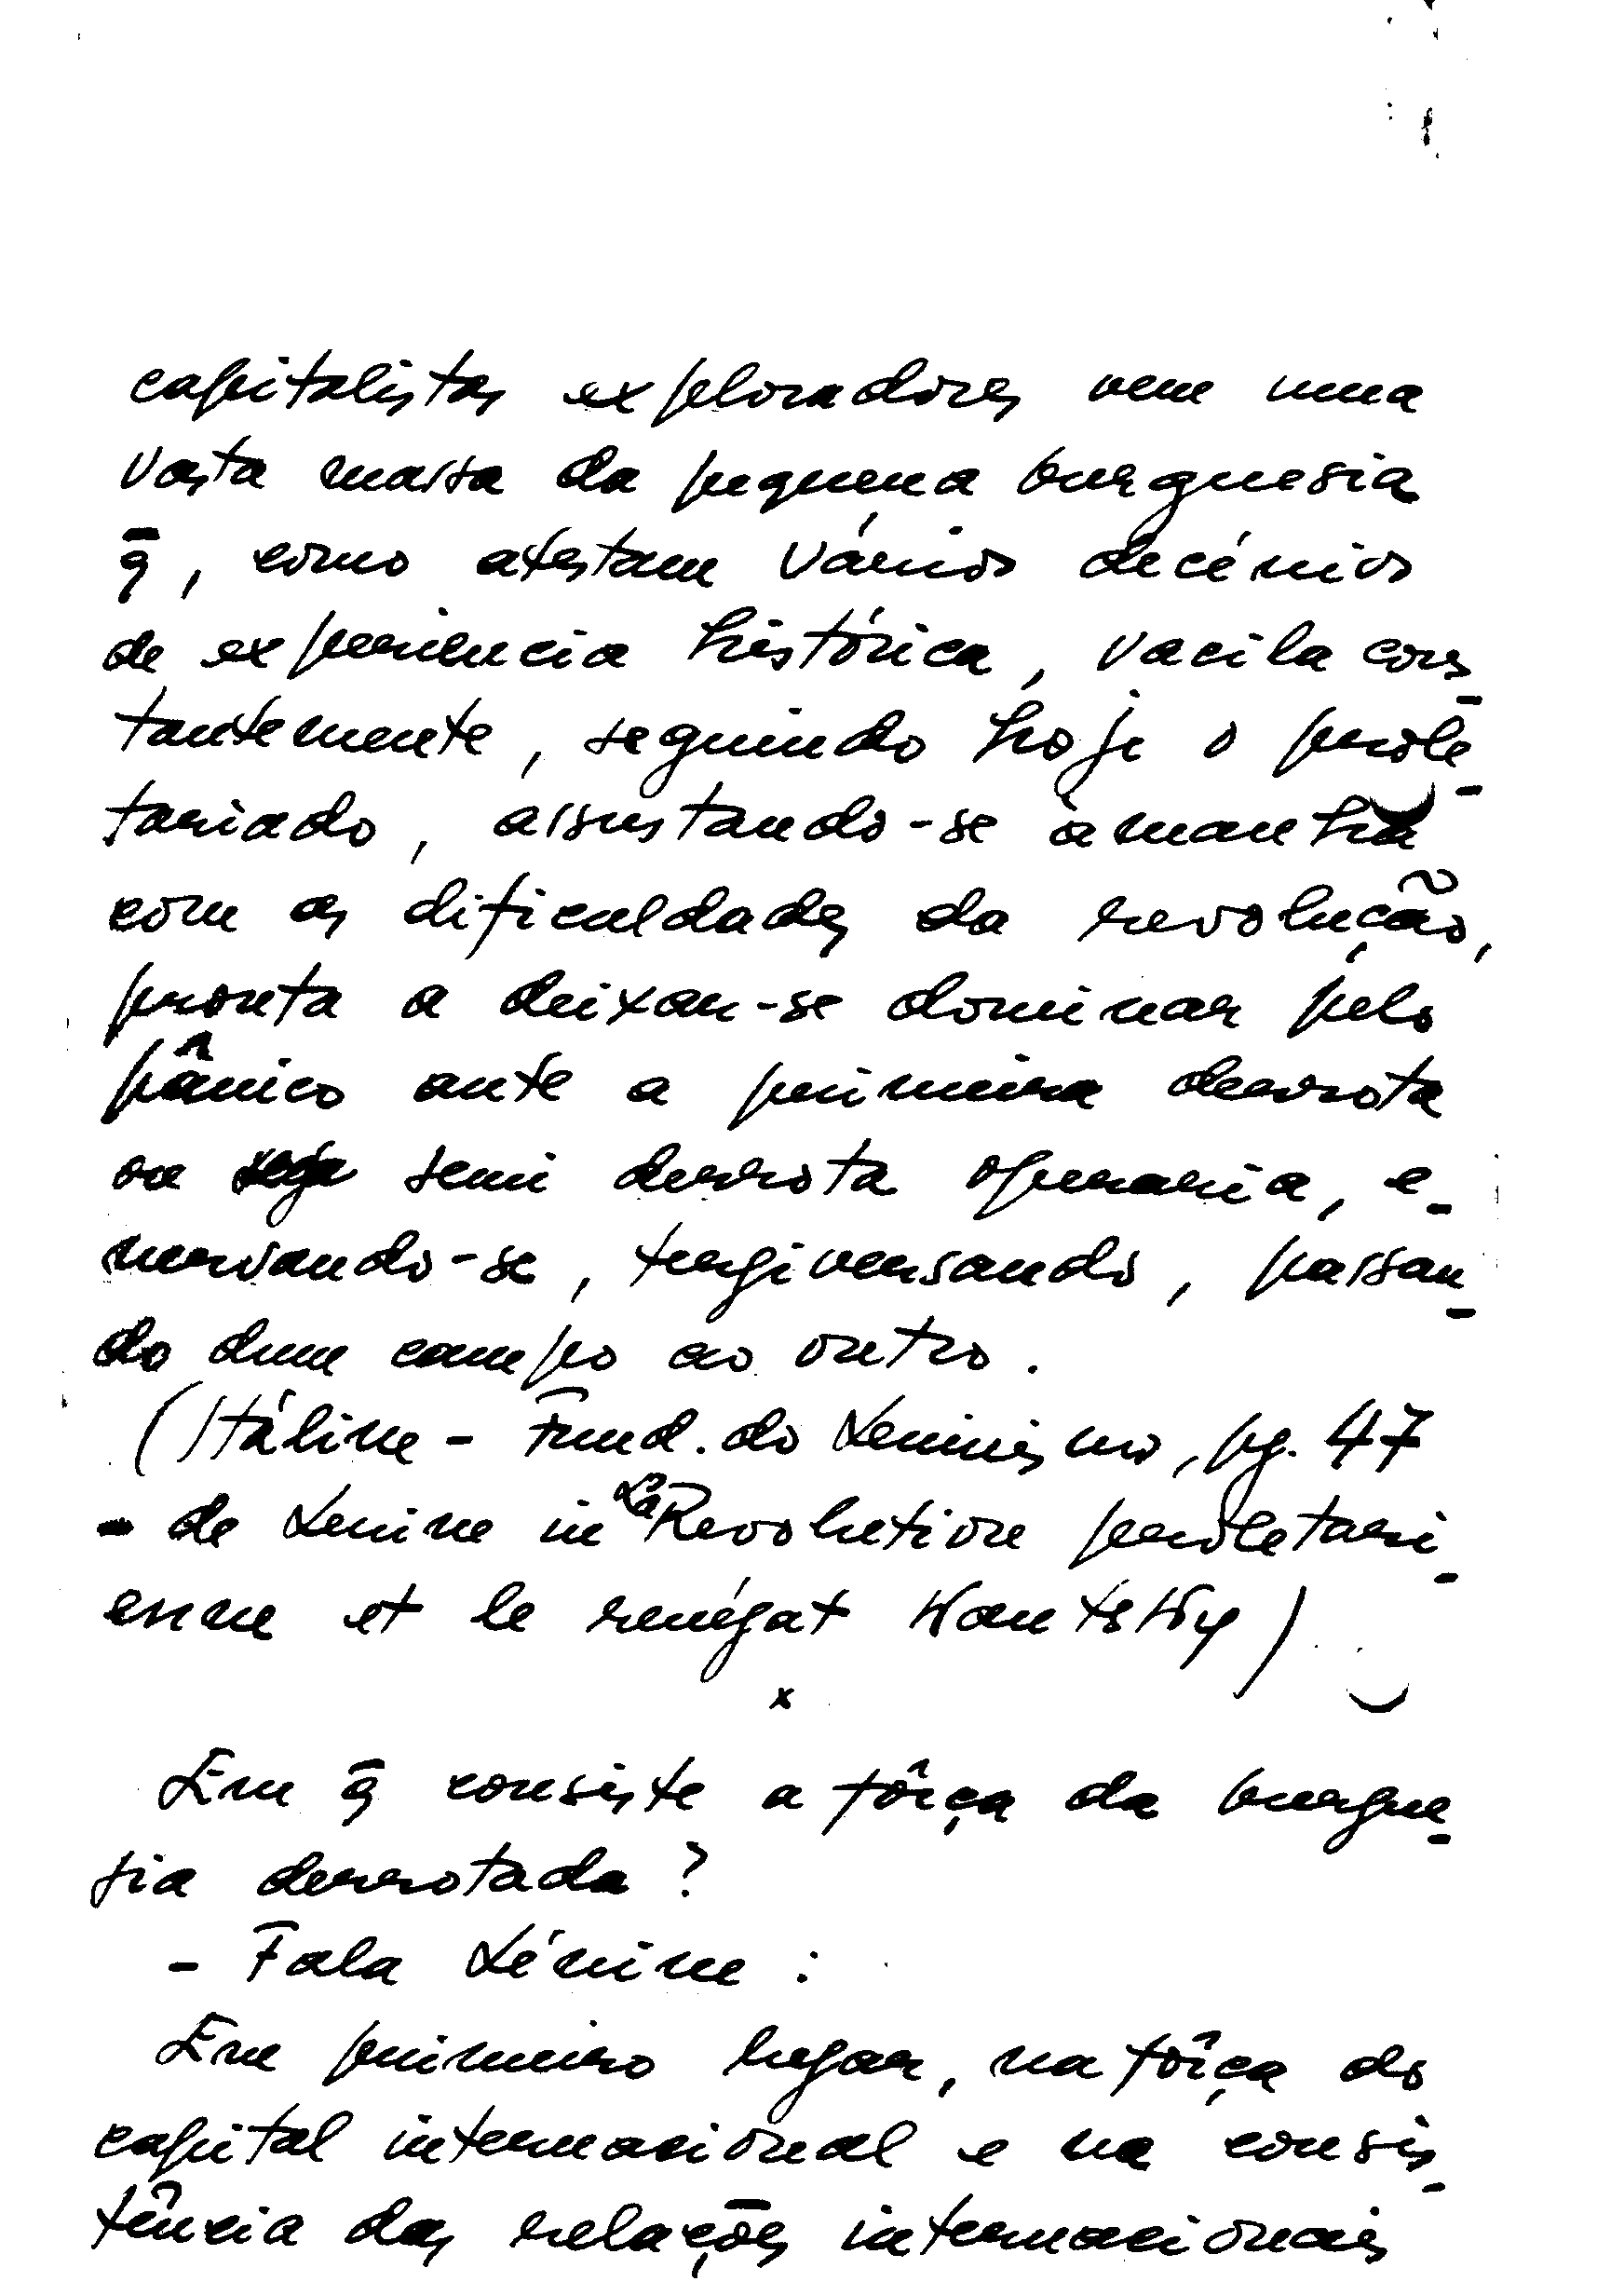 capitalistas exploradores vem uma
vasta massa da pequena burguesia
q̄, como atestam vários decénios
de experiencia histórica, vacila cons-
tantemente, seguindo hoje o prole-
tariado, assustando-se àmanhã
com as dificuldades da revolução,
pronta a deixar-se dominar pelo
pânico ante a primeira derrota
ou semi derrota operaria, e-
nervando-se, tergiversando, passan-
do dum campo ao outro.
(Stáline - Fund. do Leninismo, pg. 47
- de Lenine in La Revolution proletari-
enne et le renégat Kautsky)
x
Em q̄ consiste a fôrça da burgue-
sia derrotada?
- Fala Lénine:
Em primeiro lugar, na fôrça do
capital internacional e na consis-
tência das relações internacionais